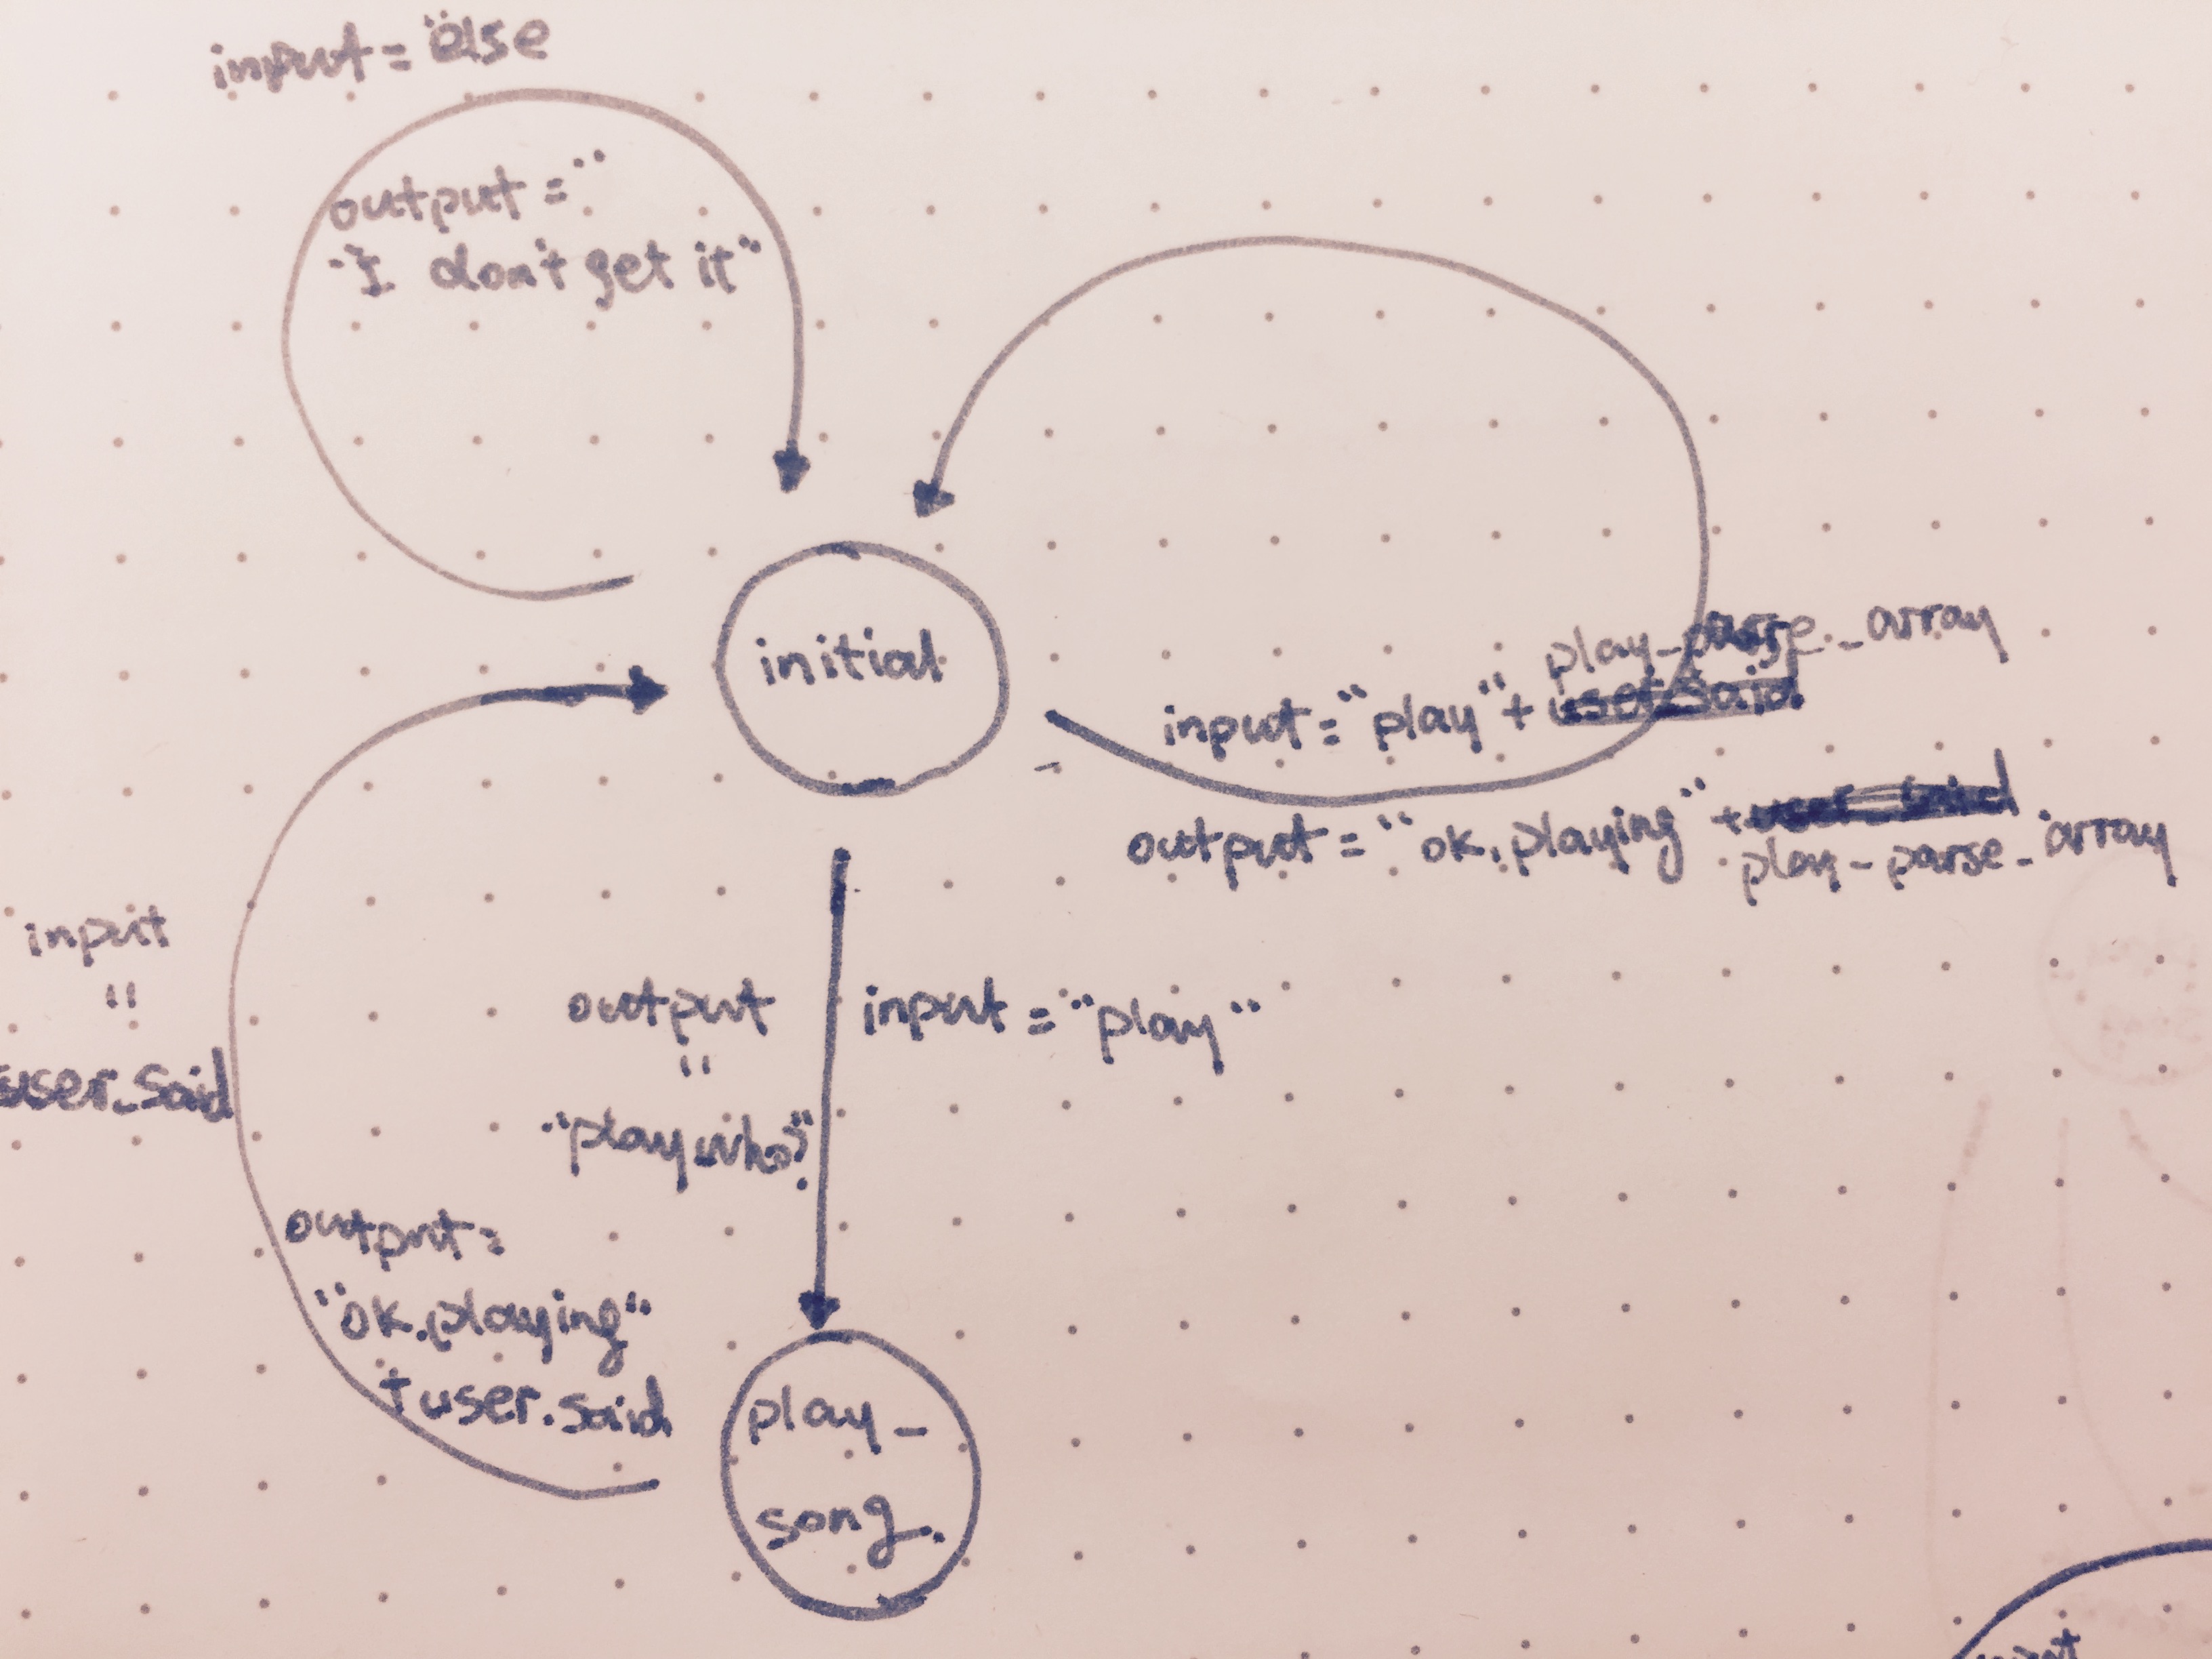 input = "else
output = "
"I don't get it"
initial
play_parse_array
input = "play" + user.said
output = "ok, playing" + user_said
play_parse_array
input
"
user_said
output
"
"play who?"
input = "play"
output =
"ok, playing"
+ user.said
play_
song.